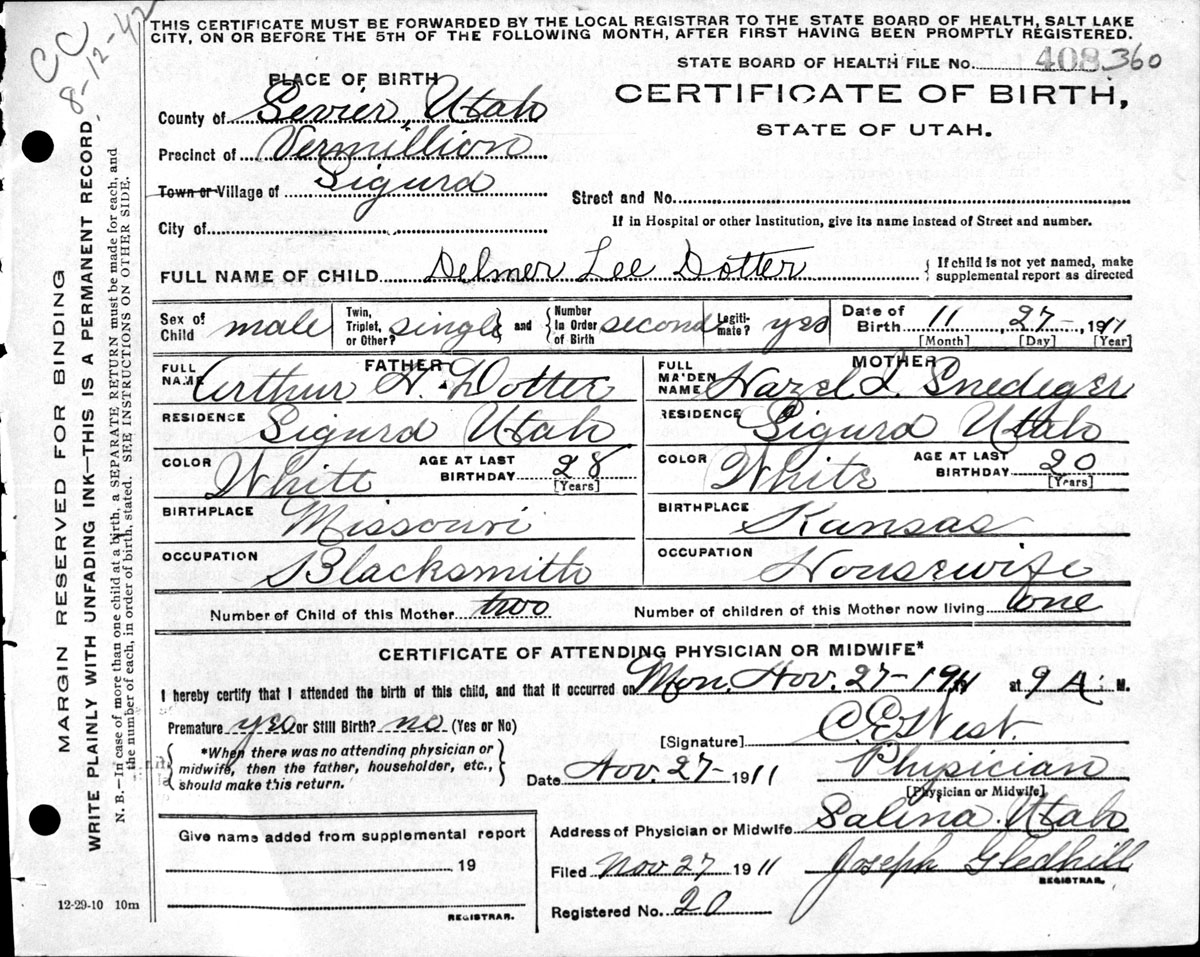 CC
8-12-42
THIS CERTIFICATE MUST BE FORWARDED BY THE LOCAL REGISTRAR TO THE STATE BOARD OF HEALTH, SALT LAKE
CITY, ON OR BEFORE THE 5TH OF THE FOLLOWING MONTH, AFTER FIRST HAVING BEEN PROMPTLY REGISTERED.
STATE BOARD OF HEALTH FILE No. 408360
PLACE OF BIRTH
CERTIFICATE OF BIRTH,
STATE OF UTAH.
County of Sevier, Utah
Precinct of Vermillion
Town or Village of Sigurd
Street and No.
City of
If in Hospital or other Institution, give its name instead of Street and number.
FULL NAME OF CHILD Delmer Lee Dotter { If child is not yet named, make
supplemental report as directed
Sex of
Child male
Twin,
Triplet,
or Other? single and { Number
in Order
of Birth second
Legiti-
mate? yes
Date of
Birth 11 27-, 1911
[Month] [Day] [Year]
FATHER
FULL
NAME Arthur H. Dotter
RESIDENCE Sigurd Utah
COLOR White AGE AT LAST
BIRTHDAY 28
[Years]
BIRTHPLACE Missouri
OCCUPATION Blacksmith
MOTHER
FULL
MAIDEN
NAME Hazel L. Snediger
RESIDENCE Sigurd Utah
COLOR White AGE AT LAST
BIRTHDAY 20
[Years]
BIRTHPLACE Kansas
OCCUPATION Housewife
Number of Child of this Mother two Number of children of this Mother now living one
CERTIFICATE OF ATTENDING PHYSICIAN OR MIDWIFE*
I hereby certify that I attended the birth of this child, and that it occurred on Mon. Nov. 27-1911 at 9 A. M.
Premature yes or Still Birth? no (Yes or No)
{ *When there was no attending physician or
midwife, then the father, householder, etc.,
should make this return. }
[Signature] C E West.
Date Nov. 27- 1911 Physician
[Physician or Midwife]
Give name added from supplemental report
19
REGISTRAR.
Address of Physician or Midwife Salina. Utah
Filed Nov 27 1911 Joseph Gledhill
REGISTRAR.
Registered No. 20
12-29-10 10m
MARGIN RESERVED FOR BINDING
WRITE PLAINLY WITH UNFADING INK—THIS IS A PERMANENT RECORD.
N. B.—In case of more than one child at a birth, a SEPARATE RETURN must be made for each, and
the number of each, in order of birth, stated. SEE INSTRUCTIONS ON OTHER SIDE.